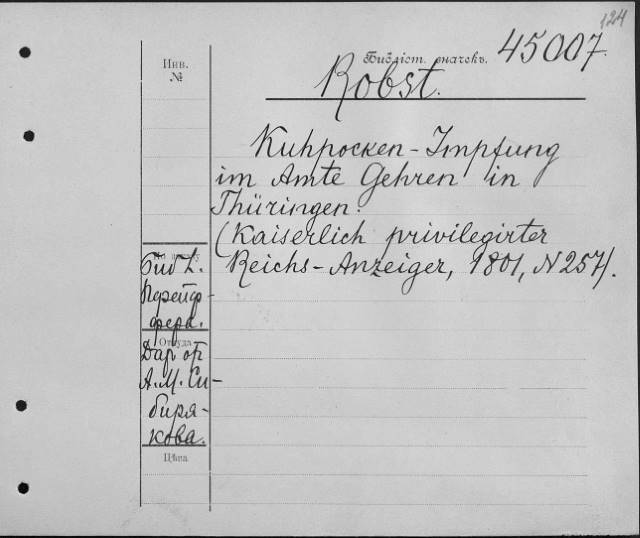 124
Библіот. значекъ. 45007.
Инв.
№
Robst.
Kuhpocken-Impfung
im Amte Gehren in
Thüringen.
(Kaiserlich privilegirter
Reichs-Anzeiger, 1801, N 257).
Библ.
Пфейф-
фера.
Откуда
Дар от
А.М. Си-
биря-
кова.
Цѣна